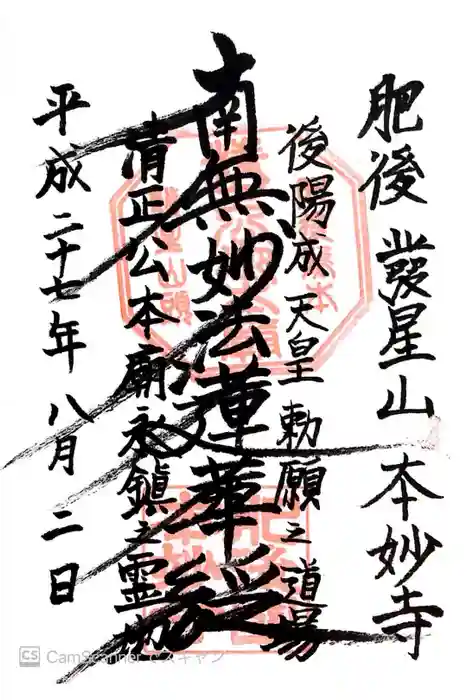 肥後 發星山 本妙寺
後陽成天皇 勅願之道場
南無妙法蓮華経
清正公本廟永鎮之霊場
平成二十七年八月二日
CS CamScanner でスキャン